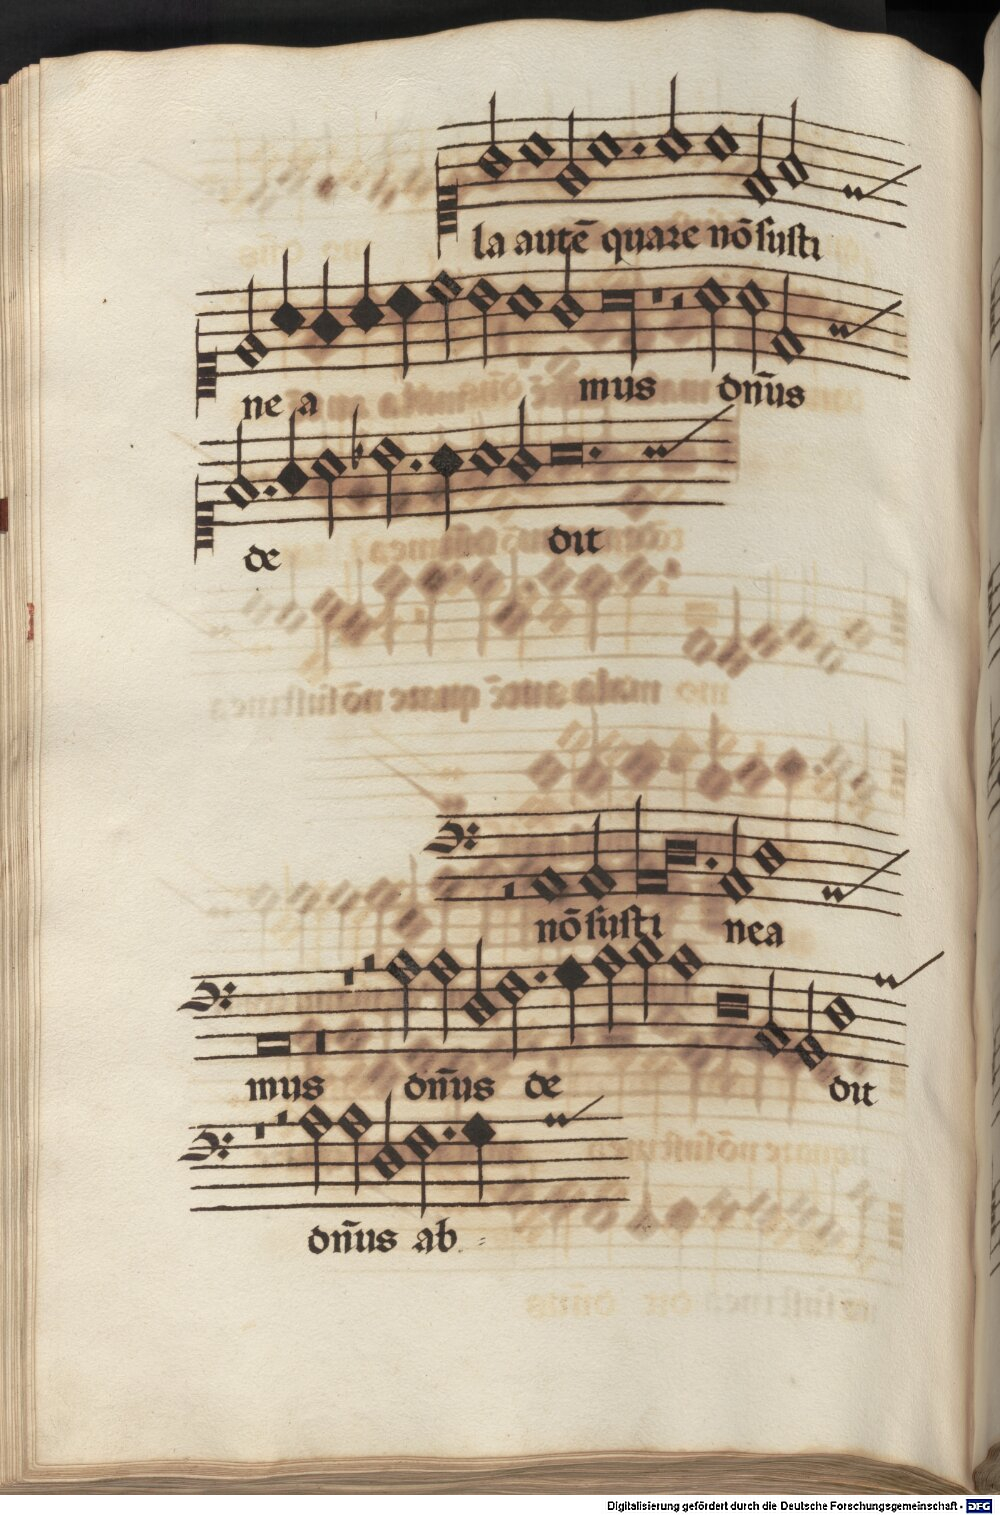 la autē quare nō susti
ne a mus dn̄us
de dit
nō susti nea
mus dn̄us de dit
dn̄us ab
Digitalisierung gefördert durch die Deutsche Forschungsgemeinschaft - DFG